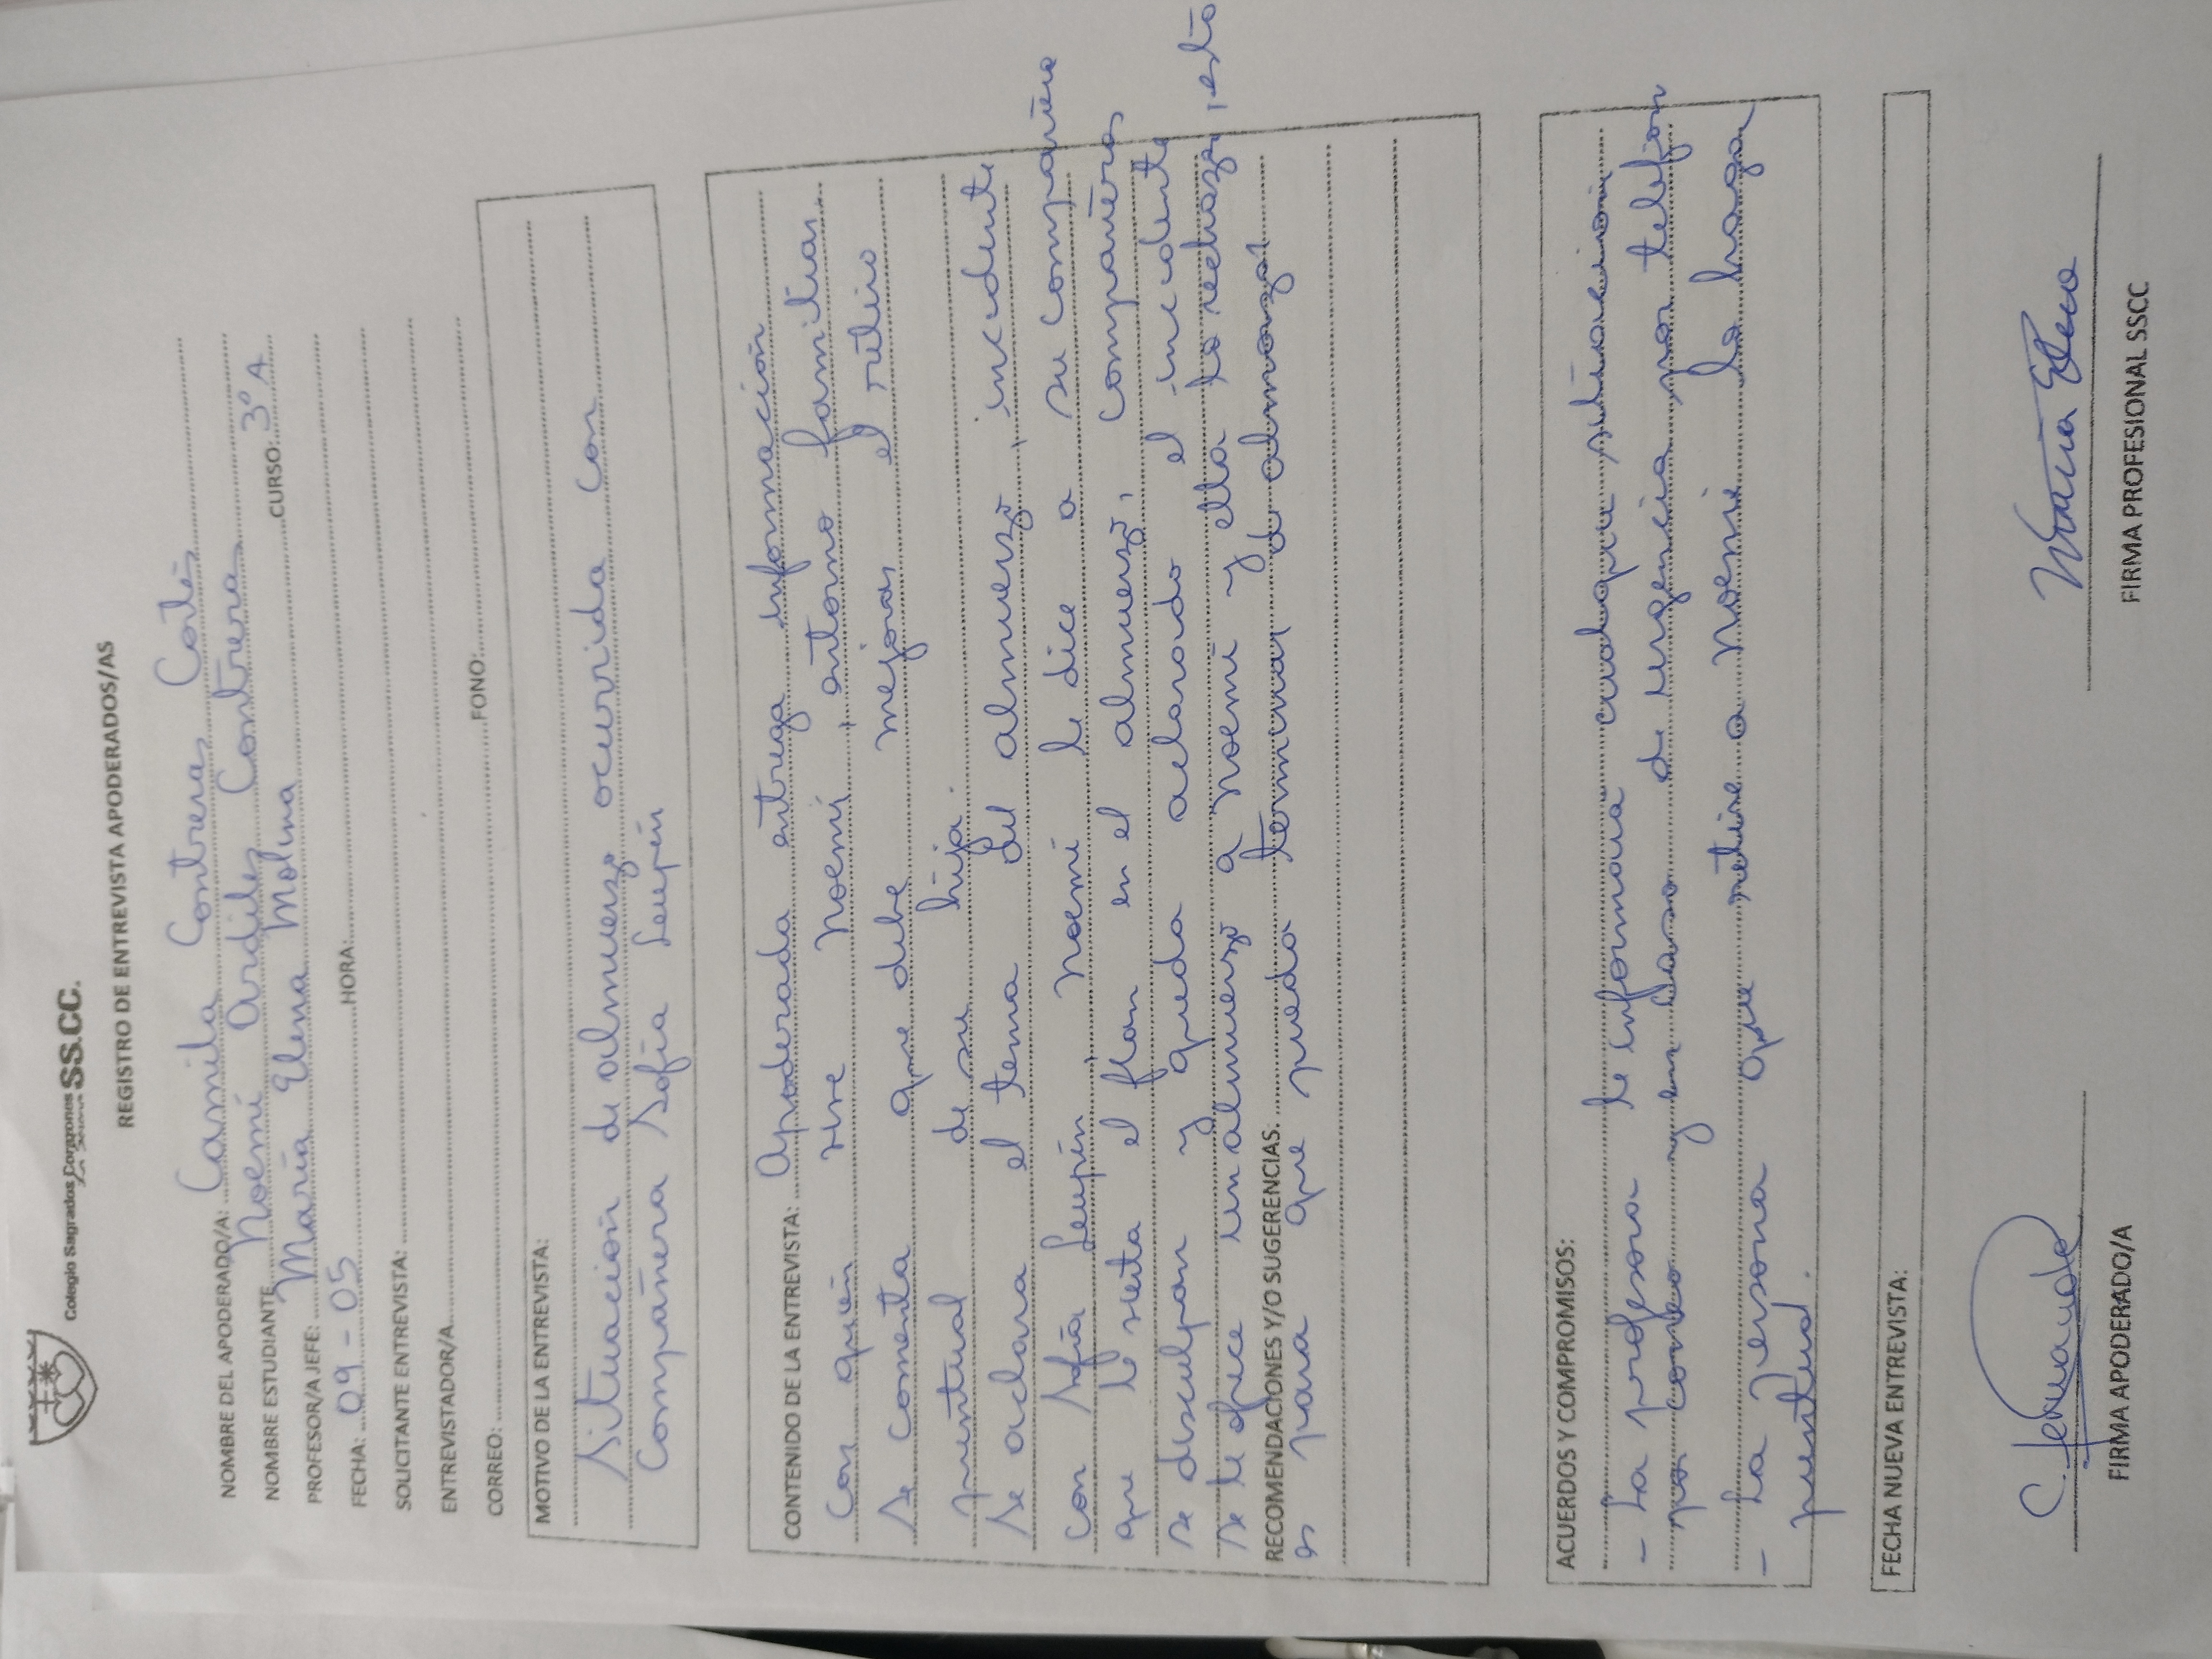 Colegio Sagrados Corazones SS.CC.
REGISTRO DE ENTREVISTA APODERADOS/AS
NOMBRE DEL APODERADO/A: Camila Contreras Cortés
NOMBRE ESTUDIANTE Noemí Ardiles Contrera
PROFESOR/A JEFE: María Elena Molina CURSO: 3º A
FECHA: 09-05 HORA:
SOLICITANTE ENTREVISTA:
ENTREVISTADOR/A
CORREO: FONO:
MOTIVO DE LA ENTREVISTA:
Situación de almuerzo ocurrida con
Compañera Sofía Leupín
CONTENIDO DE LA ENTREVISTA: Apoderada entrega información
con quién vive Noemí, entorno familiar.
Se comenta que debe mejorar el retiro
puntual de su hija.
Se aclara el tema del almuerzo, incidente
con Sofía Leupín, Noemí le dice a su compañera
que le sienta el flan en el almuerzo, compañeras
se disculpan y queda aclarado el incidente
Se le ofrece un almuerzo a Noemí y ella lo rechaza, esto
RECOMENDACIONES Y/O SUGERENCIAS.
es para que pueda terminar de almorzar
ACUERDOS Y COMPROMISOS:
- La profesora le informara cualquier situación
por correo y en caso de urgencia por teléfon
- La persona que retire a Noemí lo haga
puntual.
FECHA NUEVA ENTREVISTA:
FIRMA APODERADO/A
FIRMA PROFESIONAL SSCC